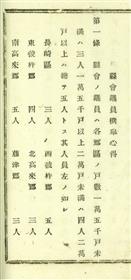 縣會ノ議員撰擧心得
第一條　縣會ノ議員ハ各郡區ノ戸數一萬五千戸未
滿ハ三人一萬五千戸以上二萬戸未滿ハ四人二萬
戸以上ハ總テ五人トス其人員左ノ如シ
長崎區　三人　西彼杵郡　五人
東彼杵郡　四人　北高來郡　三人
南高來郡　五人　藤津郡　三人